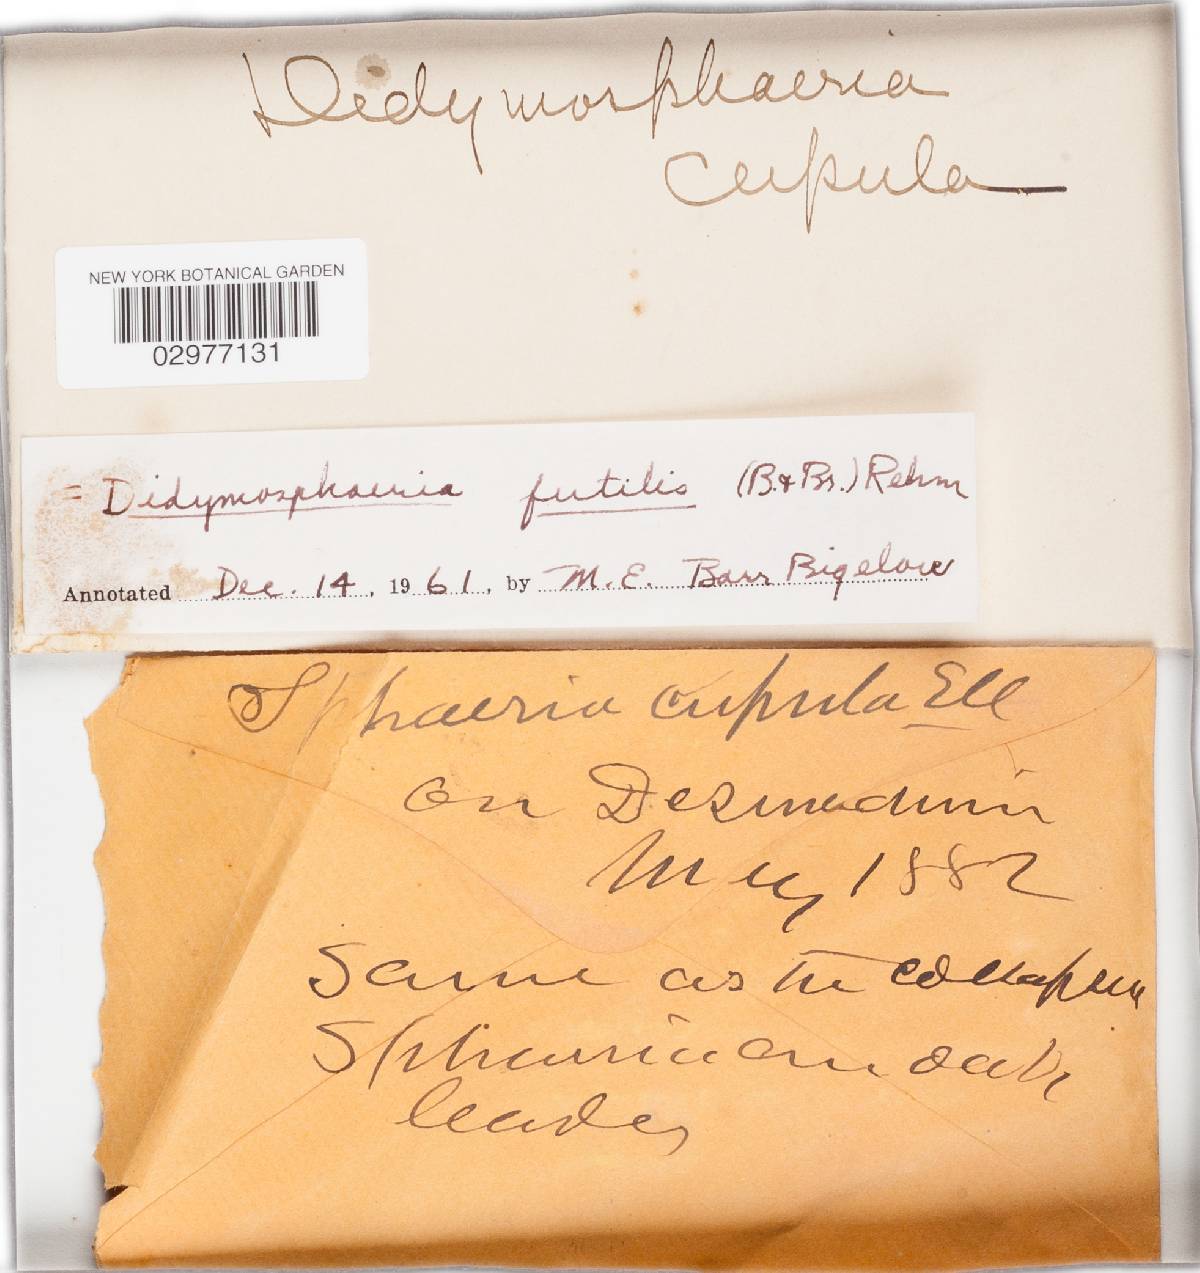 Didymosphaeria
cupula
NEW YORK BOTANICAL GARDEN
02977131
= Didymosphaeria futilis (B. & Br.) Rehm
Annotated Dec. 14, 1961, by M. E. Barr Bigelow
Sphaeria cupula Ell
on Desmodium
May 1882
Same as the
Sphaeria on oak
leaves